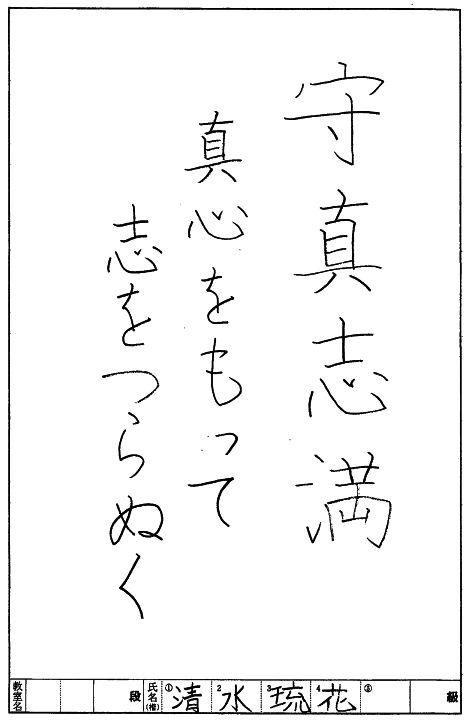 守真志満
真心をもって
志をつらぬく
教室名 段 氏名(楷) ①清 2水 3琉 4花 ⑤ 級